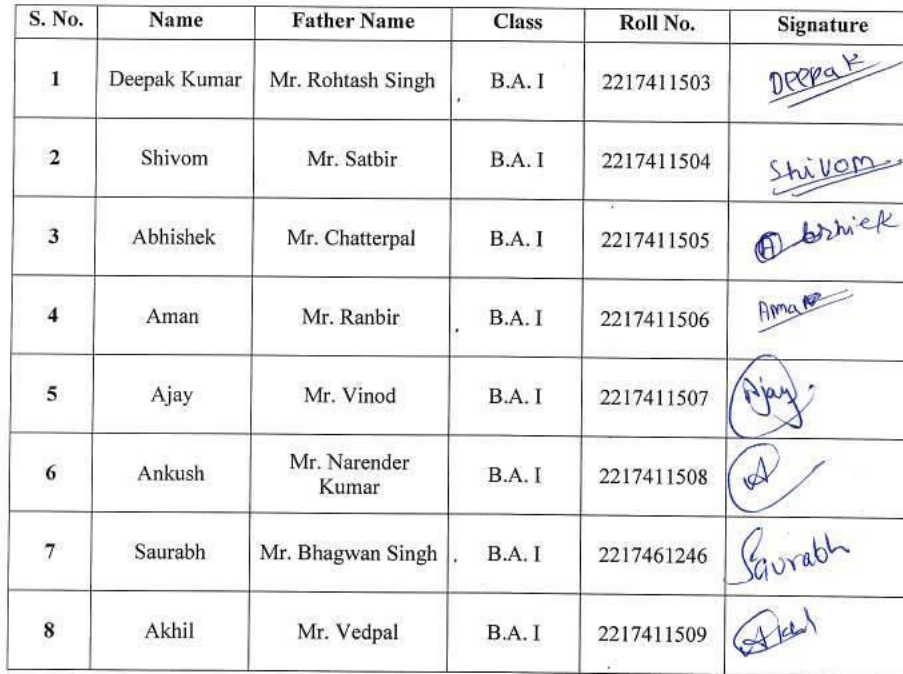 S. No. Name Father Name Class Roll No. Signature
1 Deepak Kumar Mr. Rohtash Singh B.A. I 2217411503 Deepak
2 Shivom Mr. Satbir B.A. I 2217411504 Shivom
3 Abhishek Mr. Chatterpal B.A. I 2217411505
4 Aman Mr. Ranbir B.A. I 2217411506 Aman
5 Ajay Mr. Vinod B.A. I 2217411507 Ajay
6 Ankush Mr. Narender
Kumar B.A. I 2217411508 A
7 Saurabh Mr. Bhagwan Singh B.A. I 2217461246 Saurabh
8 Akhil Mr. Vedpal B.A. I 2217411509